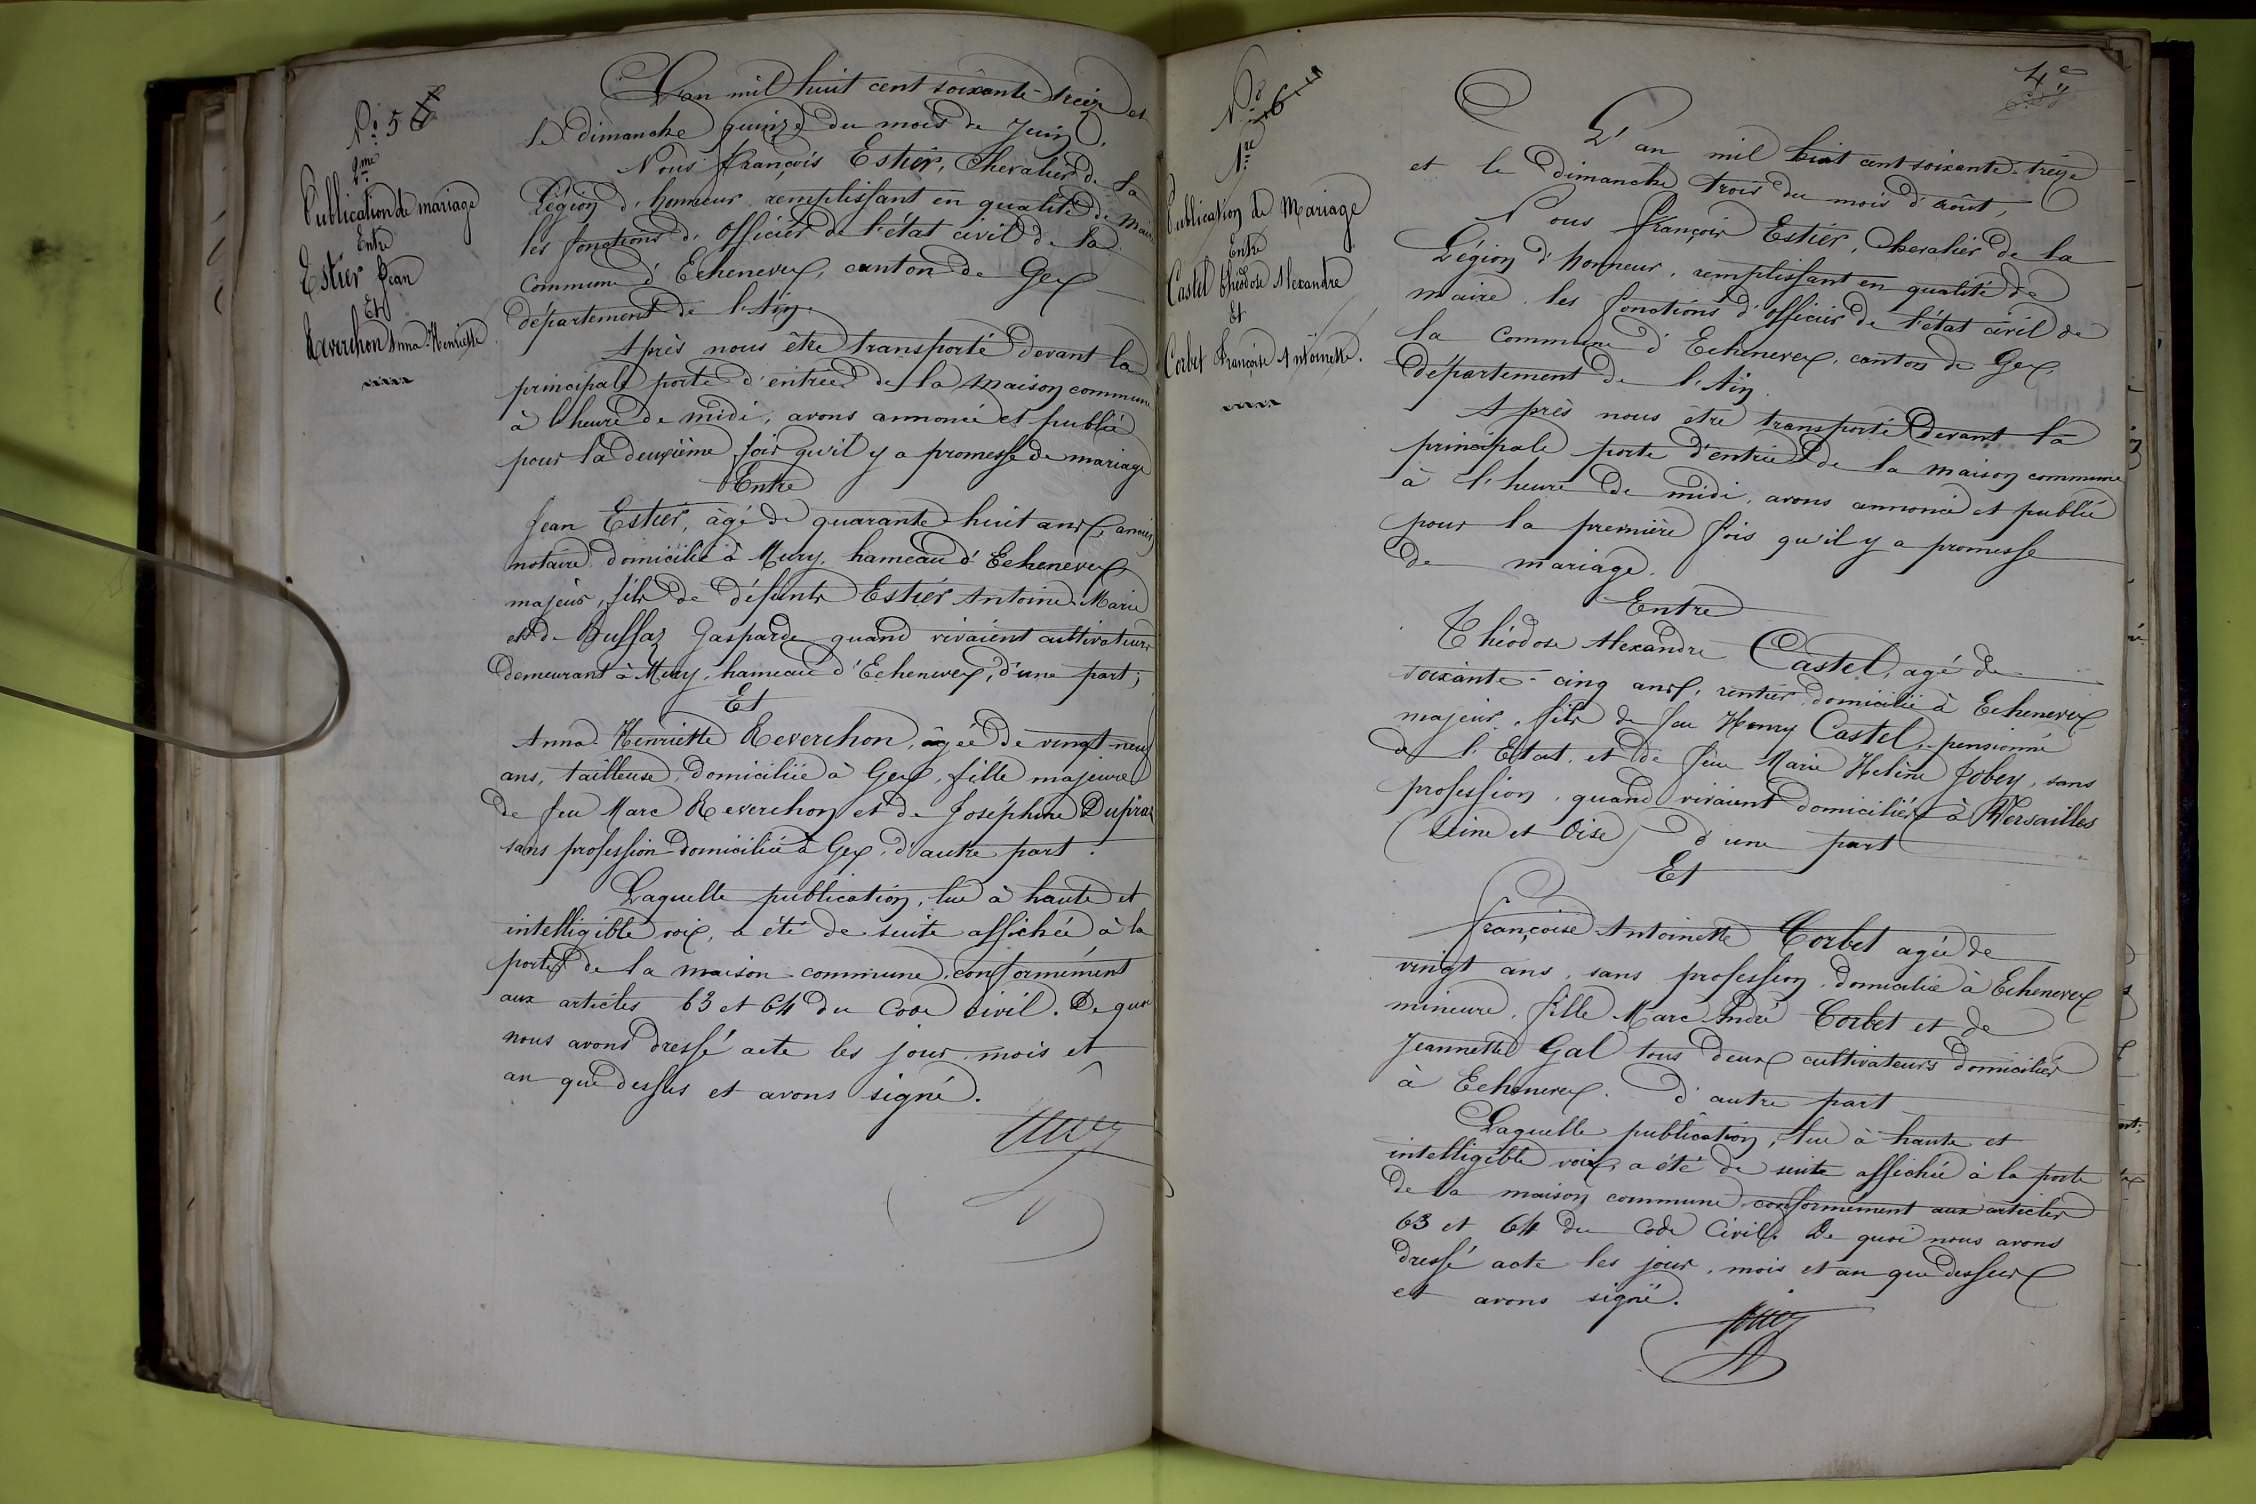 N° 5
2me
Publication de mariage
Entre
Estier Jean
Et
Reverchon Anna-Henriette
L'an mil huit cent soixante-treize et
le dimanche quinze du mois de Juin,
Nous François Estier, Chevalier de la
Légion d'honneur remplissant en qualité de Maire
les fonctions d'Officier de l'état civil de la
commune d'Echenevex, canton de Gex
département de l'Ain.
Après nous être transporté devant la
principale porte d'entrée de la maison commune
à l'heure de midi, avons annoncé et publié
pour la deuxième fois qu'il y a promesse de mariage
Entre
Jean Estier, âgé de quarante-huit ans, ancien
notaire domicilié à Mury, hameau d'Echenevex
majeur, fils de défunts Estier Antoine-Marie
et de Buffaz Gasparde quand vivaient cultivateurs
demeurant à Mury, hameau d'Echenevex, d'une part;
Et
Anna-Henriette Reverchon, âgée de vingt-neuf
ans, tailleuse, domiciliée à Gex, fille majeure
de feu Marc Reverchon et de Joséphine Dupraz
sans profession domiciliée à Gex, d'autre part.
Laquelle publication, lue à haute et
intelligible voix, a été de suite affichée à la
porte de la maison commune, conformément
aux articles 63 et 64 du Code civil. De quoi
nous avons dressé acte les jour, mois et
an que dessus et avons signé.
4e
N° 6
1re
Publication de Mariage
Entre
Castel Théodose Alexandre
Et
Corbet Françoise Antoinette.
L'an mil huit cent soixante-treize
et le dimanche trois du mois d'août,
Nous François Estier, Chevalier de la
Légion d'honneur, remplissant en qualité de
maire les fonctions d'officier de l'état civil de
la commune d'Echenevex, canton de Gex,
département de l'Ain.
Après nous être transporté devant la
principale porte d'entrée de la maison commune
à l'heure de midi, avons annoncé et publié
pour la première fois qu'il y a promesse
de mariage.
Entre
Théodose Alexandre Castel, agé de
soixante-cinq ans, rentier domicilié à Echenevex
majeur, fils de feu Henry Castel, pensionné
de l'Etat, et de feue Marie Hélène Jobey, sans
profession, quand vivaient domiciliés à Versailles
(Seine et Oise) d'une part
Et
Françoise Antoinette Corbet agée de
vingt ans, sans profession, domiciliée à Echenevex
mineure, fille Marc André Corbet et de
Jeannette Gal tous deux cultivateurs domiciliés
à Echenevex. d'autre part
Laquelle publication, lue à haute et
intelligible voix, a été de suite affichée à la porte
de la maison commune, conformément aux articles
63 et 64 du Code Civil. De quoi nous avons
dressé acte les jour, mois et an que dessus
et avons signé.